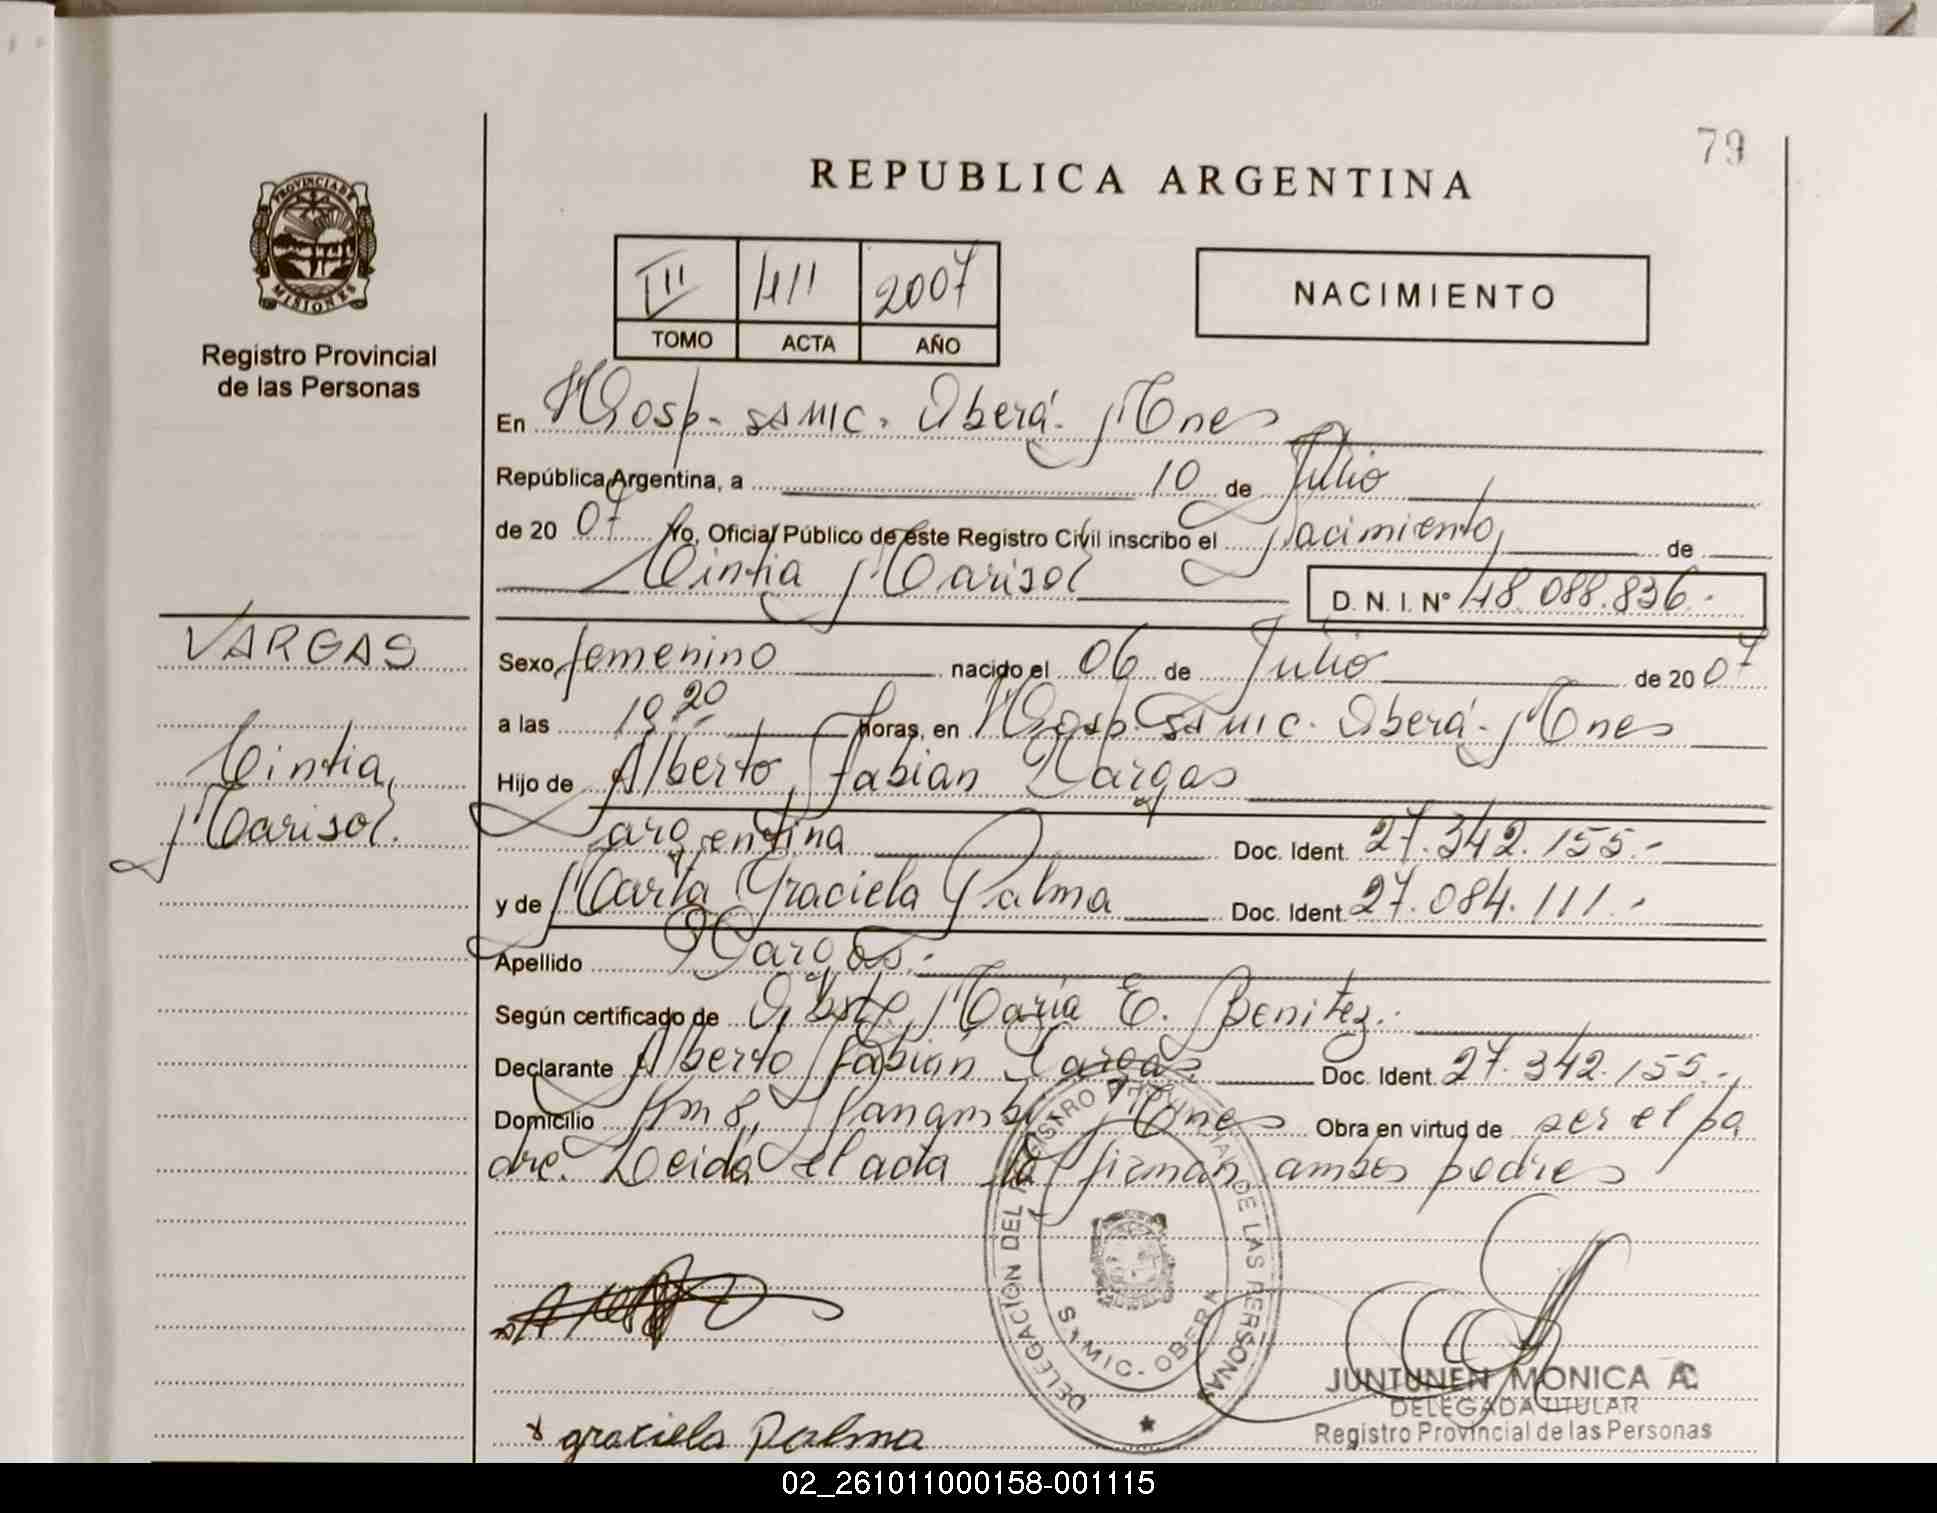 79
REPUBLICA ARGENTINA
PROVINCIA DE
MISIONES
Registro Provincial
de las Personas
III 411 2007
TOMO ACTA AÑO
NACIMIENTO
En Hosp. SAMIC. Oberá. Mnes
República Argentina, a 10 de Julio
de 20 07 Yo, Oficial Público de este Registro Civil inscribo el Nacimiento, de
Cintia Marisol D. N. I. Nº 48.088.836.-
VARGAS
Cintia,
Marisol.
Sexo, femenino nacido el 06 de Julio de 20 07
a las 19.20 horas, en Hosp. SAMIC. Oberá. Mnes
Hijo de Alberto Fabian Vargas
argentina Doc. Ident. 27.342.155.-
y de Marta Graciela Palma Doc. Ident. 27.084.111.-
Apellido Vargas.-
Según certificado de Obste. María E. Benitez.-
Declarante Alberto Fabian Vargas Doc. Ident. 27.342.155.-
Domicilio Km 8, Panambi Mnes Obra en virtud de ser el pa
dre. Leida el acta la firman ambos padres
DELEGACION DEL REGISTRO PROVINCIAL DE LAS PERSONAS
SAMIC. OBERA
JUNTUNEN MONICA A.
DELEGADA TITULAR
Registro Provincial de las Personas
graciela Palma
02_261011000158-001115